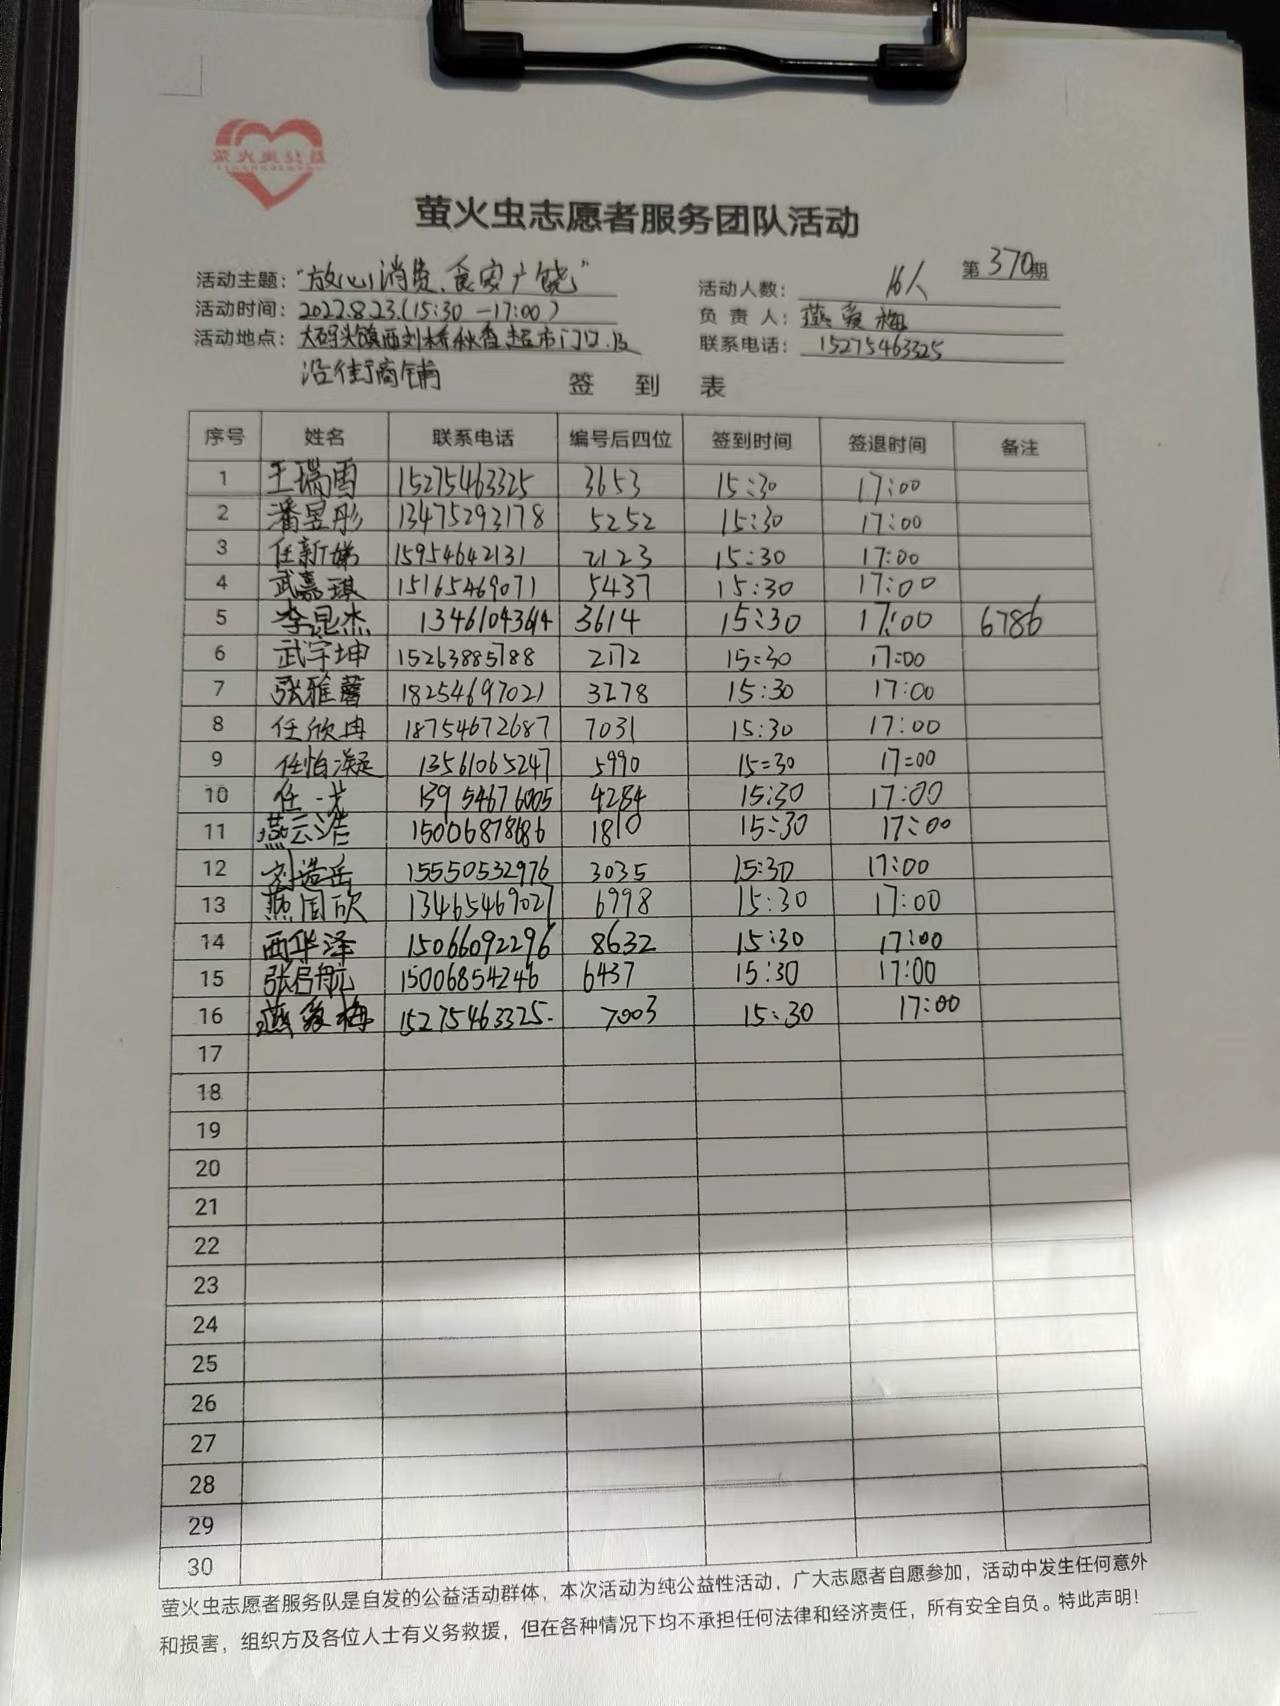 萤火虫志愿者服务团队活动
第370期
活动主题："放心消费、食安广饶"
活动人数：16人
活动时间：2022.8.23.(15:30—17:00)
负责人：燕爱梅
活动地点：大码头镇西刘桥秋香超市门口及
联系电话：15275463325
沿街商铺
签到表
序号 姓名 联系电话 编号后四位 签到时间 签退时间 备注
1 王瑞雨 15275463325 3653 15:30 17:00
2 潘昱彤 13475293178 5252 15:30 17:00
3 任新娣 15954642131 2123 15:30 17:00
4 武嘉琪 15165469071 5437 15:30 17:00
5 李昆杰 13461043614 3614 15:30 17:00 6786
6 武宇坤 15263885788 2172 15:30 17:00
7 张雅馨 18254697021 3278 15:30 17:00
8 任欣冉 18754672687 7031 15:30 17:00
9 任怡凝 13561065247 5990 15:30 17:00
10 任一 13954676005 4284 15:30 17:00
11 燕云浩 15006878686 1810 15:30 17:00
12 刘浩岳 15550532976 3035 15:30 17:00
13 燕国欣 13465469027 6998 15:30 17:00
14 西华泽 15066092296 8632 15:30 17:00
15 张启航 15006854246 6437 15:30 17:00
16 燕爱梅 15275463325. 7003 15:30 17:00
17
18
19
20
21
22
23
24
25
26
27
28
29
30
萤火虫志愿者服务队是自发的公益活动群体，本次活动为纯公益性活动，广大志愿者自愿参加，活动中发生任何意外
和损害，组织方及各位人士有义务救援，但在各种情况下均不承担任何法律和经济责任，所有安全自负。特此声明！